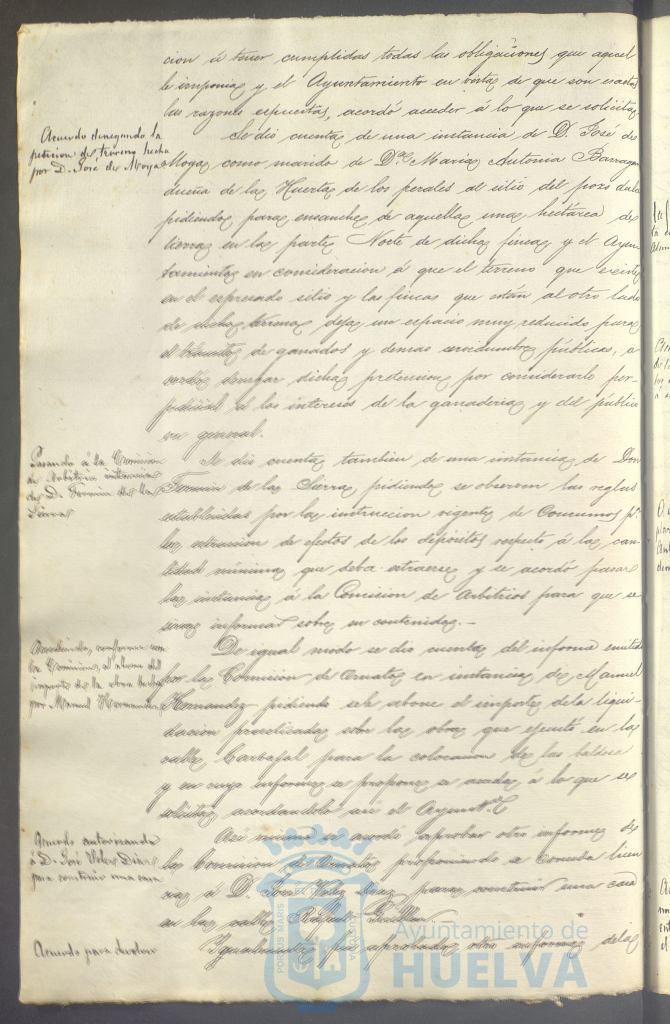 cion á tener cumplidas todas las obligaciones que aquel
le imponia y el Ayuntamiento en vista de que son exactas
las razones espuestas, acordó acceder á lo que se solicita.
Acuerdo denegando la
peticion de terreno hecha
por D. José de Moya
Se dió cuenta de una instancia de D. José de
Moya como marido de Dª Maria Antonia Barragan
dueña de la Huerta de los perales al sitio del pozo dulce
pidiendo para ensanche de aquella una hectárea de
tierra en la parte Norte de dicha finca y el Ayun-
tamiento en consideracion á que el terreno que existe
en el espresado sitio y las fincas que están al otro lado
de dicho terreno deja un espacio muy reducido para
el tránsito de ganados y demas servidumbres públicas, a
cordó denegar dicha pretension por considerarlo per-
judicial á los intereses de la ganaderia y del público
en general.
Pasando á la Comision
de Arbitrios instancia
de D. Fermin de la
Sierra
Se dió cuenta tambien de una instancia de Don
Fermin de la Sierra pidiendo se observen las reglas
establecidas por la instruccion vigente de Consumos pª
la estraccion de efectos de los depósitos respecto á la can-
tidad mínima que deba estraerse y se acordó pasar
la instancia á la Comision de Arbitrios para que se
sirva informar sobre su contenido.-
Accediendo, conforme con
la Comision, al abono del
importe de la obra hecha
por Manuel Hernandez
De igual modo se dió cuenta del informe emitido
por la Comision de Ornato en instancia de Manuel
Hernandez pidiendo se le abone el importe de la liqui-
dacion practicada sobre las obras que ejecutó en la
calle Carbajal para la colocacion de las baldosas
y en cuyo informe se propone se acceda á lo que se
solicita, acordandolo así el Ayuntº
Acuerdo autorizando
á D. José Velez Diaz
para construir una casa
Así mismo se acordó aprobar otro informe de
la Comision de Ornato proponiendo se conceda licen
cia á D. José Velez Diaz para construir una casa
en la calle Rafael Guillen.-
Acuerdo para devolver
Igualmente fué aprobado otro informe de la
Ayuntamiento de
HUELVA